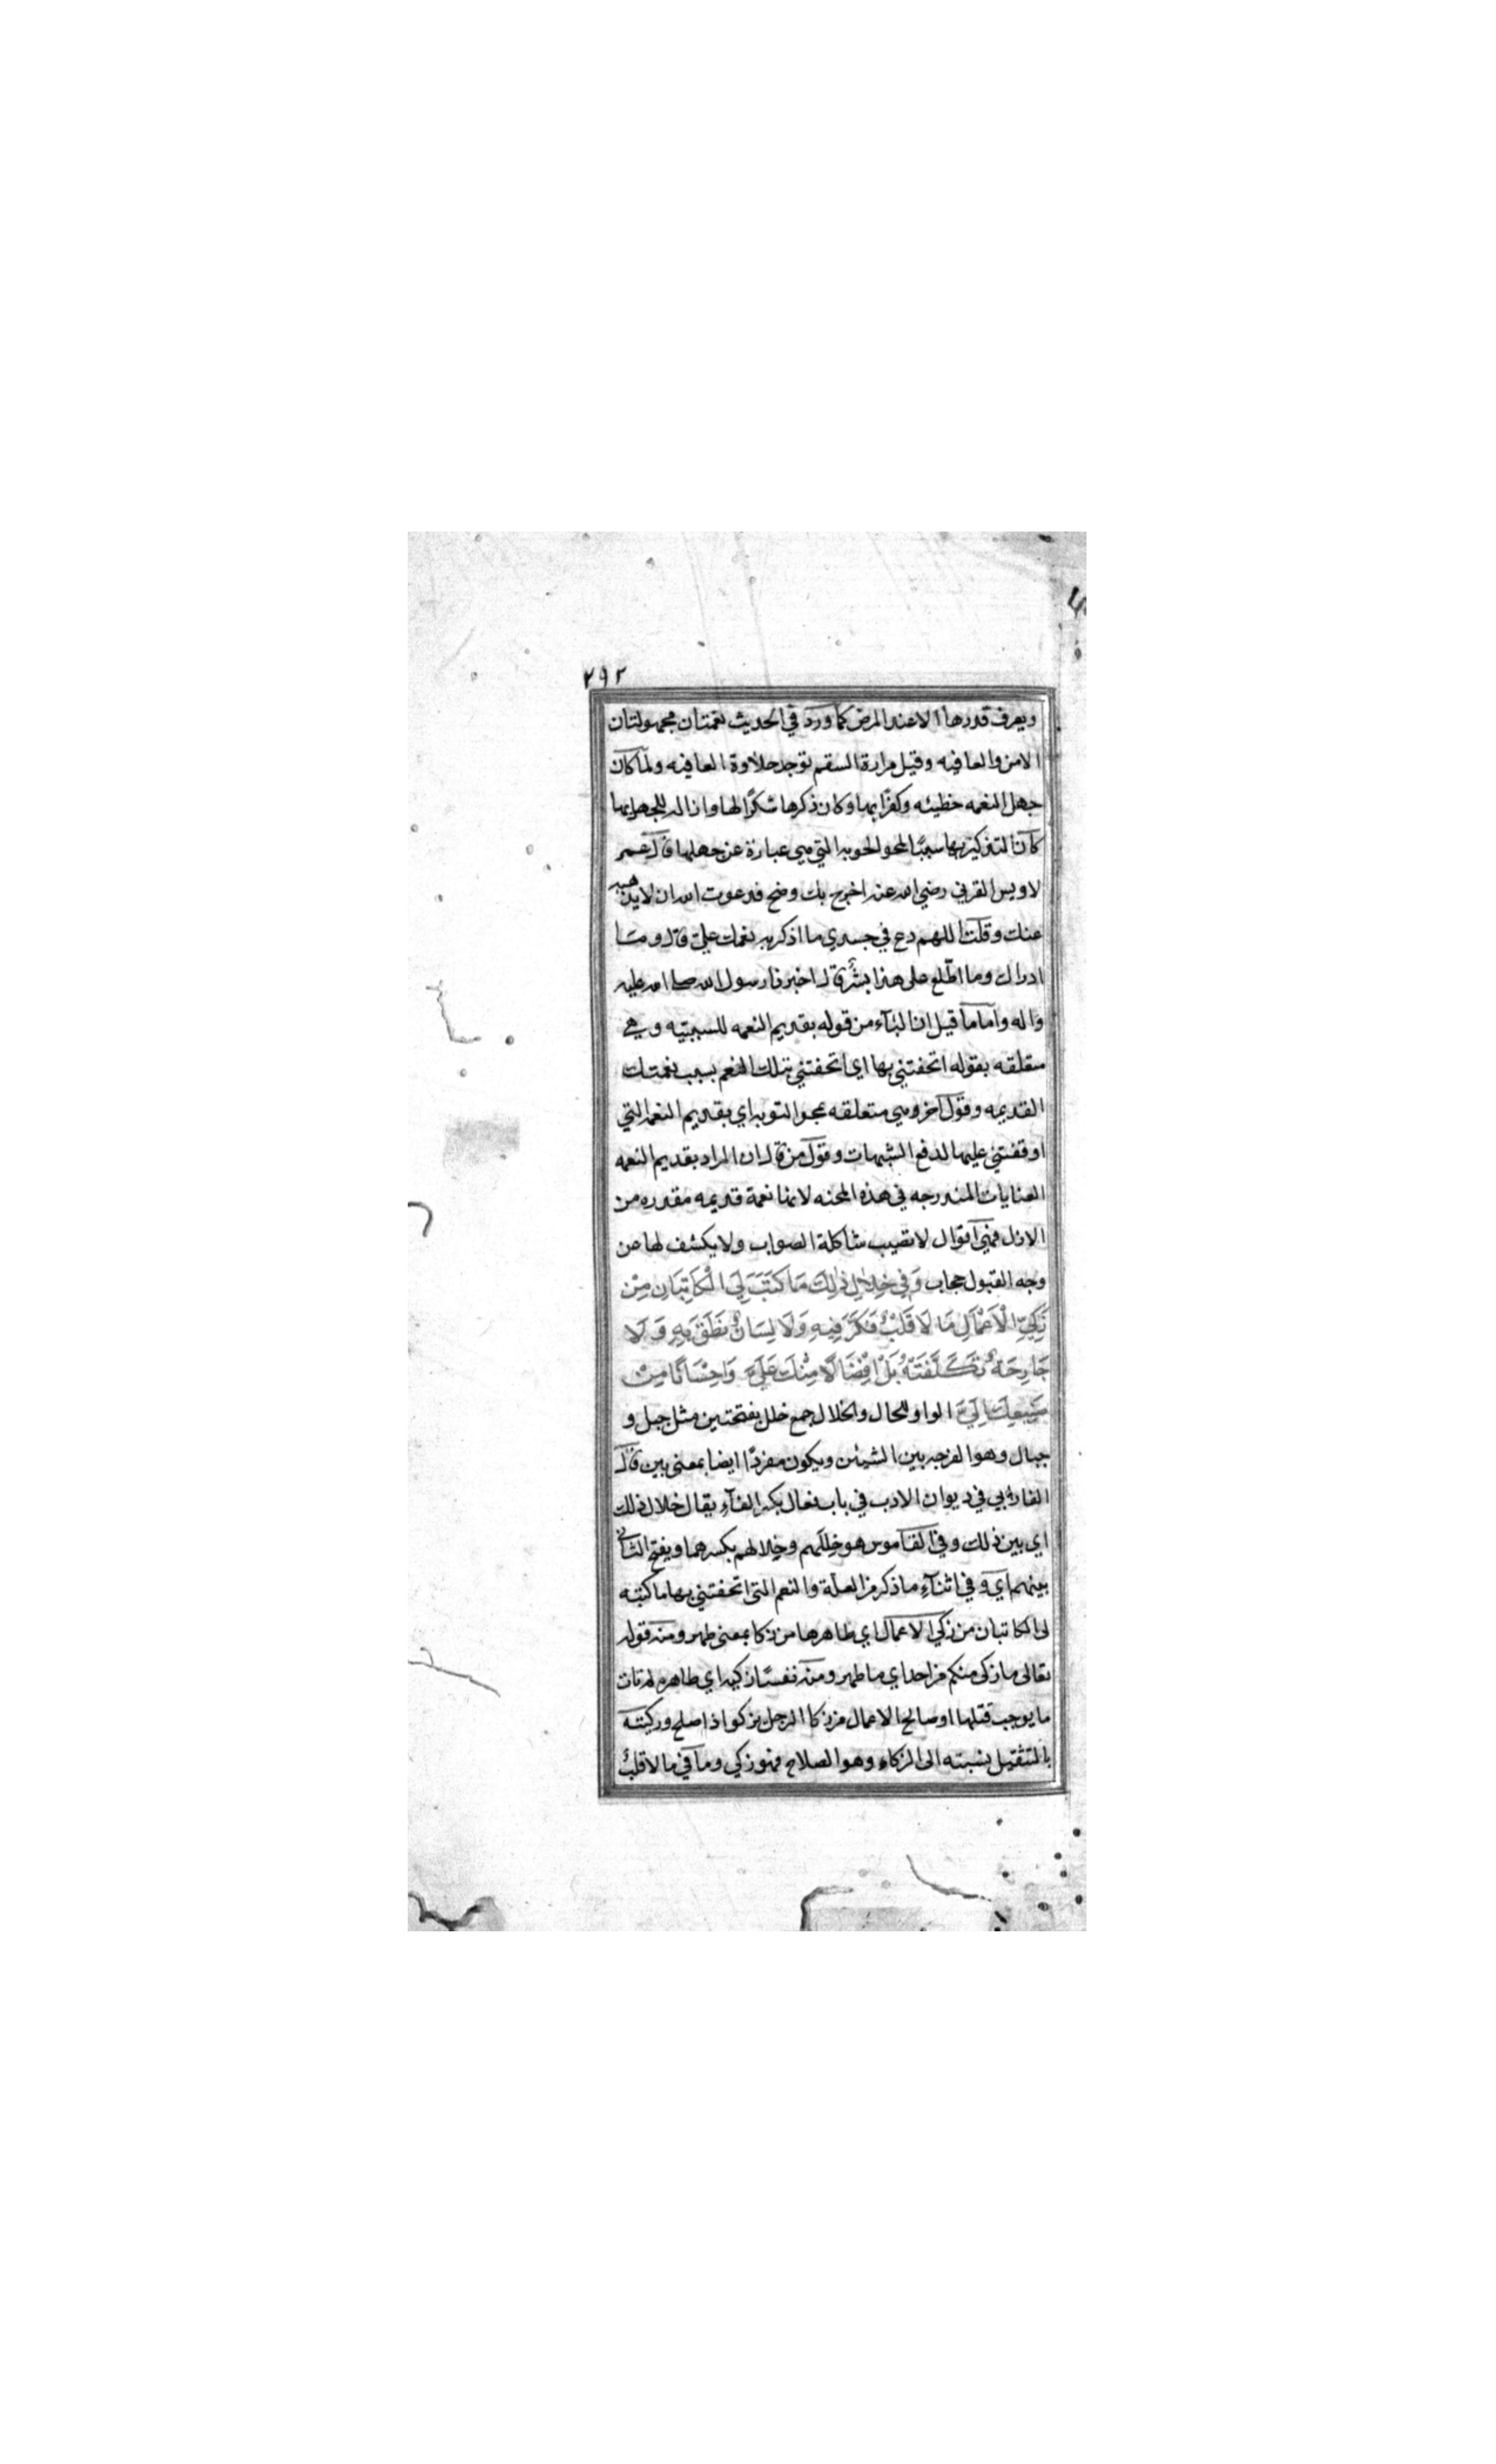 ٢٩٢
ويعرف قدرها الا عند المرض كما ورد في الحديث نعمتان مجهولتان
الامن والعافيه وقيل مرارة السقم توجد حلاوة العافيه ولما كان
جهل النعمه خطيئه وكفرًا بها وكان ذكرها شكرًا لها وازاله للجهل بها
كان التذكير بها سببًا لمحو الحوبه التي هي عبارة عن جهلها قال عمر
لاويس القرني رضي الله عنه اخرج بك وضح فدعوت الله ان لا يذهبه
عنك وقلت اللهم دع في جسدي ما اذكر به نعمك علي قال وما
ادراك وما اطّلع على هذا بشر قال اخبرنا رسول الله صلى الله عليه
واله واما ما قيل ان الباء من قوله بقديم النعمه للسببيه وهي
متعلقه بقوله اتحفتني بها اي اتحفتني بتلك النعم بسبب نعمتك
القديمه وقول اخر وهي متعلقه بمحو التوبه اي بقديم النعمه التي
اوقفتني عليها لدفع الشبهات وقول من قال ان المراد بقديم النعمه
العنايات المندرجه في هذه المحنه لانها نعمة قديمه مقدره من
الازل فهي اقوال لا تصيب شاكلة الصواب ولا يكشف لها عن
وجه القبول حجاب وَفِي خِلَالِ ذٰلِكَ مَا كَتَبَ لِيَ الْكَاتِبَانِ مِنْ
زَكِيِّ الْاَعْمَالِ مَا لَا قَلْبٌ فَكَّرَ فِيهِ وَلَا لِسَانٌ نَطَقَ بِهِ وَلَا
جَارِحَةٌ تَكَلَّفَتْهُ بَلْ اِفْضَالًا مِنْكَ عَلَيَّ وَاِحْسَانًا مِنْ
صَنِيعِكَ اِلَيَّ الواو للحال والخلال جمع خلل بفتحتين مثل جبل و
جبال وهو الفرجه بين الشيئن ويكون مفردًا ايضا بمعنى بين قال
الفارابي في ديوان الادب في باب فعال بكسر الفآء يقال خلال ذلك
اي بين ذلك وفي القاموس هو خِلَلَهم وخِلالهم بكسرهما ويفتح الثاني
بينهم اي وفي اثنآء ما ذكر من العلة والنعم التي اتحفتني بها ما كتبه
لي الكاتبان من زكي الاعمال اي طاهرها من زكا بمعنى طهر ومنه قوله
تعالى ما زكى منكم من احد اي ما طهر ومنه نفسًا زكيه اي طاهره لم تات
ما يوجب قتلها او صالح الاعمال من زكا الرجل يزكو اذا صلح وزكيته
بالتثقيل نسبته الى الزكاء وهو الصلاح فهو زكي وما في ما لا قلبٌ